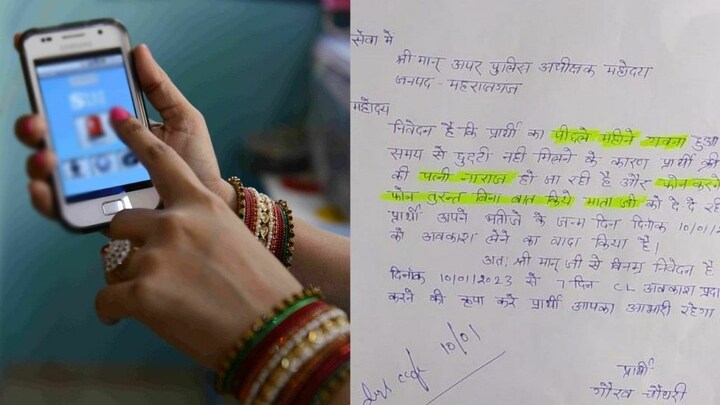 SAMSUNG
सेवा में
श्रीमान् अपर पुलिस अधीक्षक महोदय
जनपद - महराजगंज
महोदय
निवेदन है कि प्रार्थी का पिछले महिने गवना हुआ
समय से छुट्टी नही मिलने के कारण प्रार्थी की
की पत्नी नाराज हो जा रही है और फोन करने
फोन तुरन्त बिना बात किये माता जी को दे दे रही
प्रार्थी अपने भतीजे के जन्म दिन दिनांक 10/01/2
को अवकाश लेने का वादा किया है।
अतः श्री मान् जी से विनम्र निवेदन है
दिनांक 10/01/2023 से 7 दिन CL अवकाश प्रदा
करने की कृपा करे प्रार्थी आपका आभारी रहेगा
10/01
प्रार्थी
गौरव चौधरी